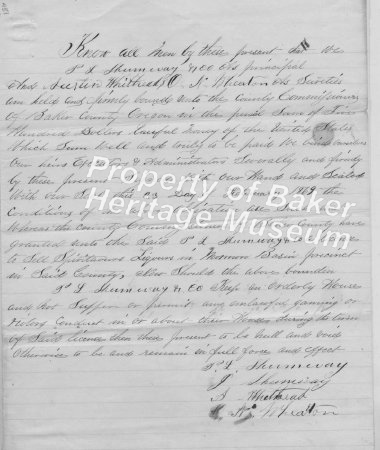 Know all Men by these present that We
P. L. Shumway & Co as principal
And Austin Whitbeak, O. N. Wheaton as Sureties
are held and firmly bound unto the County Commissioners
Of Baker County Oregon in the penal Sum of Five
Hundred Dollars lawful Money of the United States
Which Sum well and truly to be paid We bind ourselves
Our heirs Executors & Administrators Severally and firmly
by these presents our Hand and Sealed
With our Seals this Day 1869 the
Conditions of
Whereas the County Court County have
granted unto the Said P. L. Shumway
to Sell Spirituous Liquors in Mormon Basin precinct
in Said County, Now Should the above bounden
P. L. Shumway & Co Keep an Orderly House
and Not Suffer or permit any unlawful gaming or
riotous Conduct in or about their House during the term
of Said license then these present to be null and void
Otherwise to be and remain in full force and effect
P. L. Shumway
J. Shumway
A. Whitbeak
O. N. Wheaton
Property of Baker
Heritage Museum